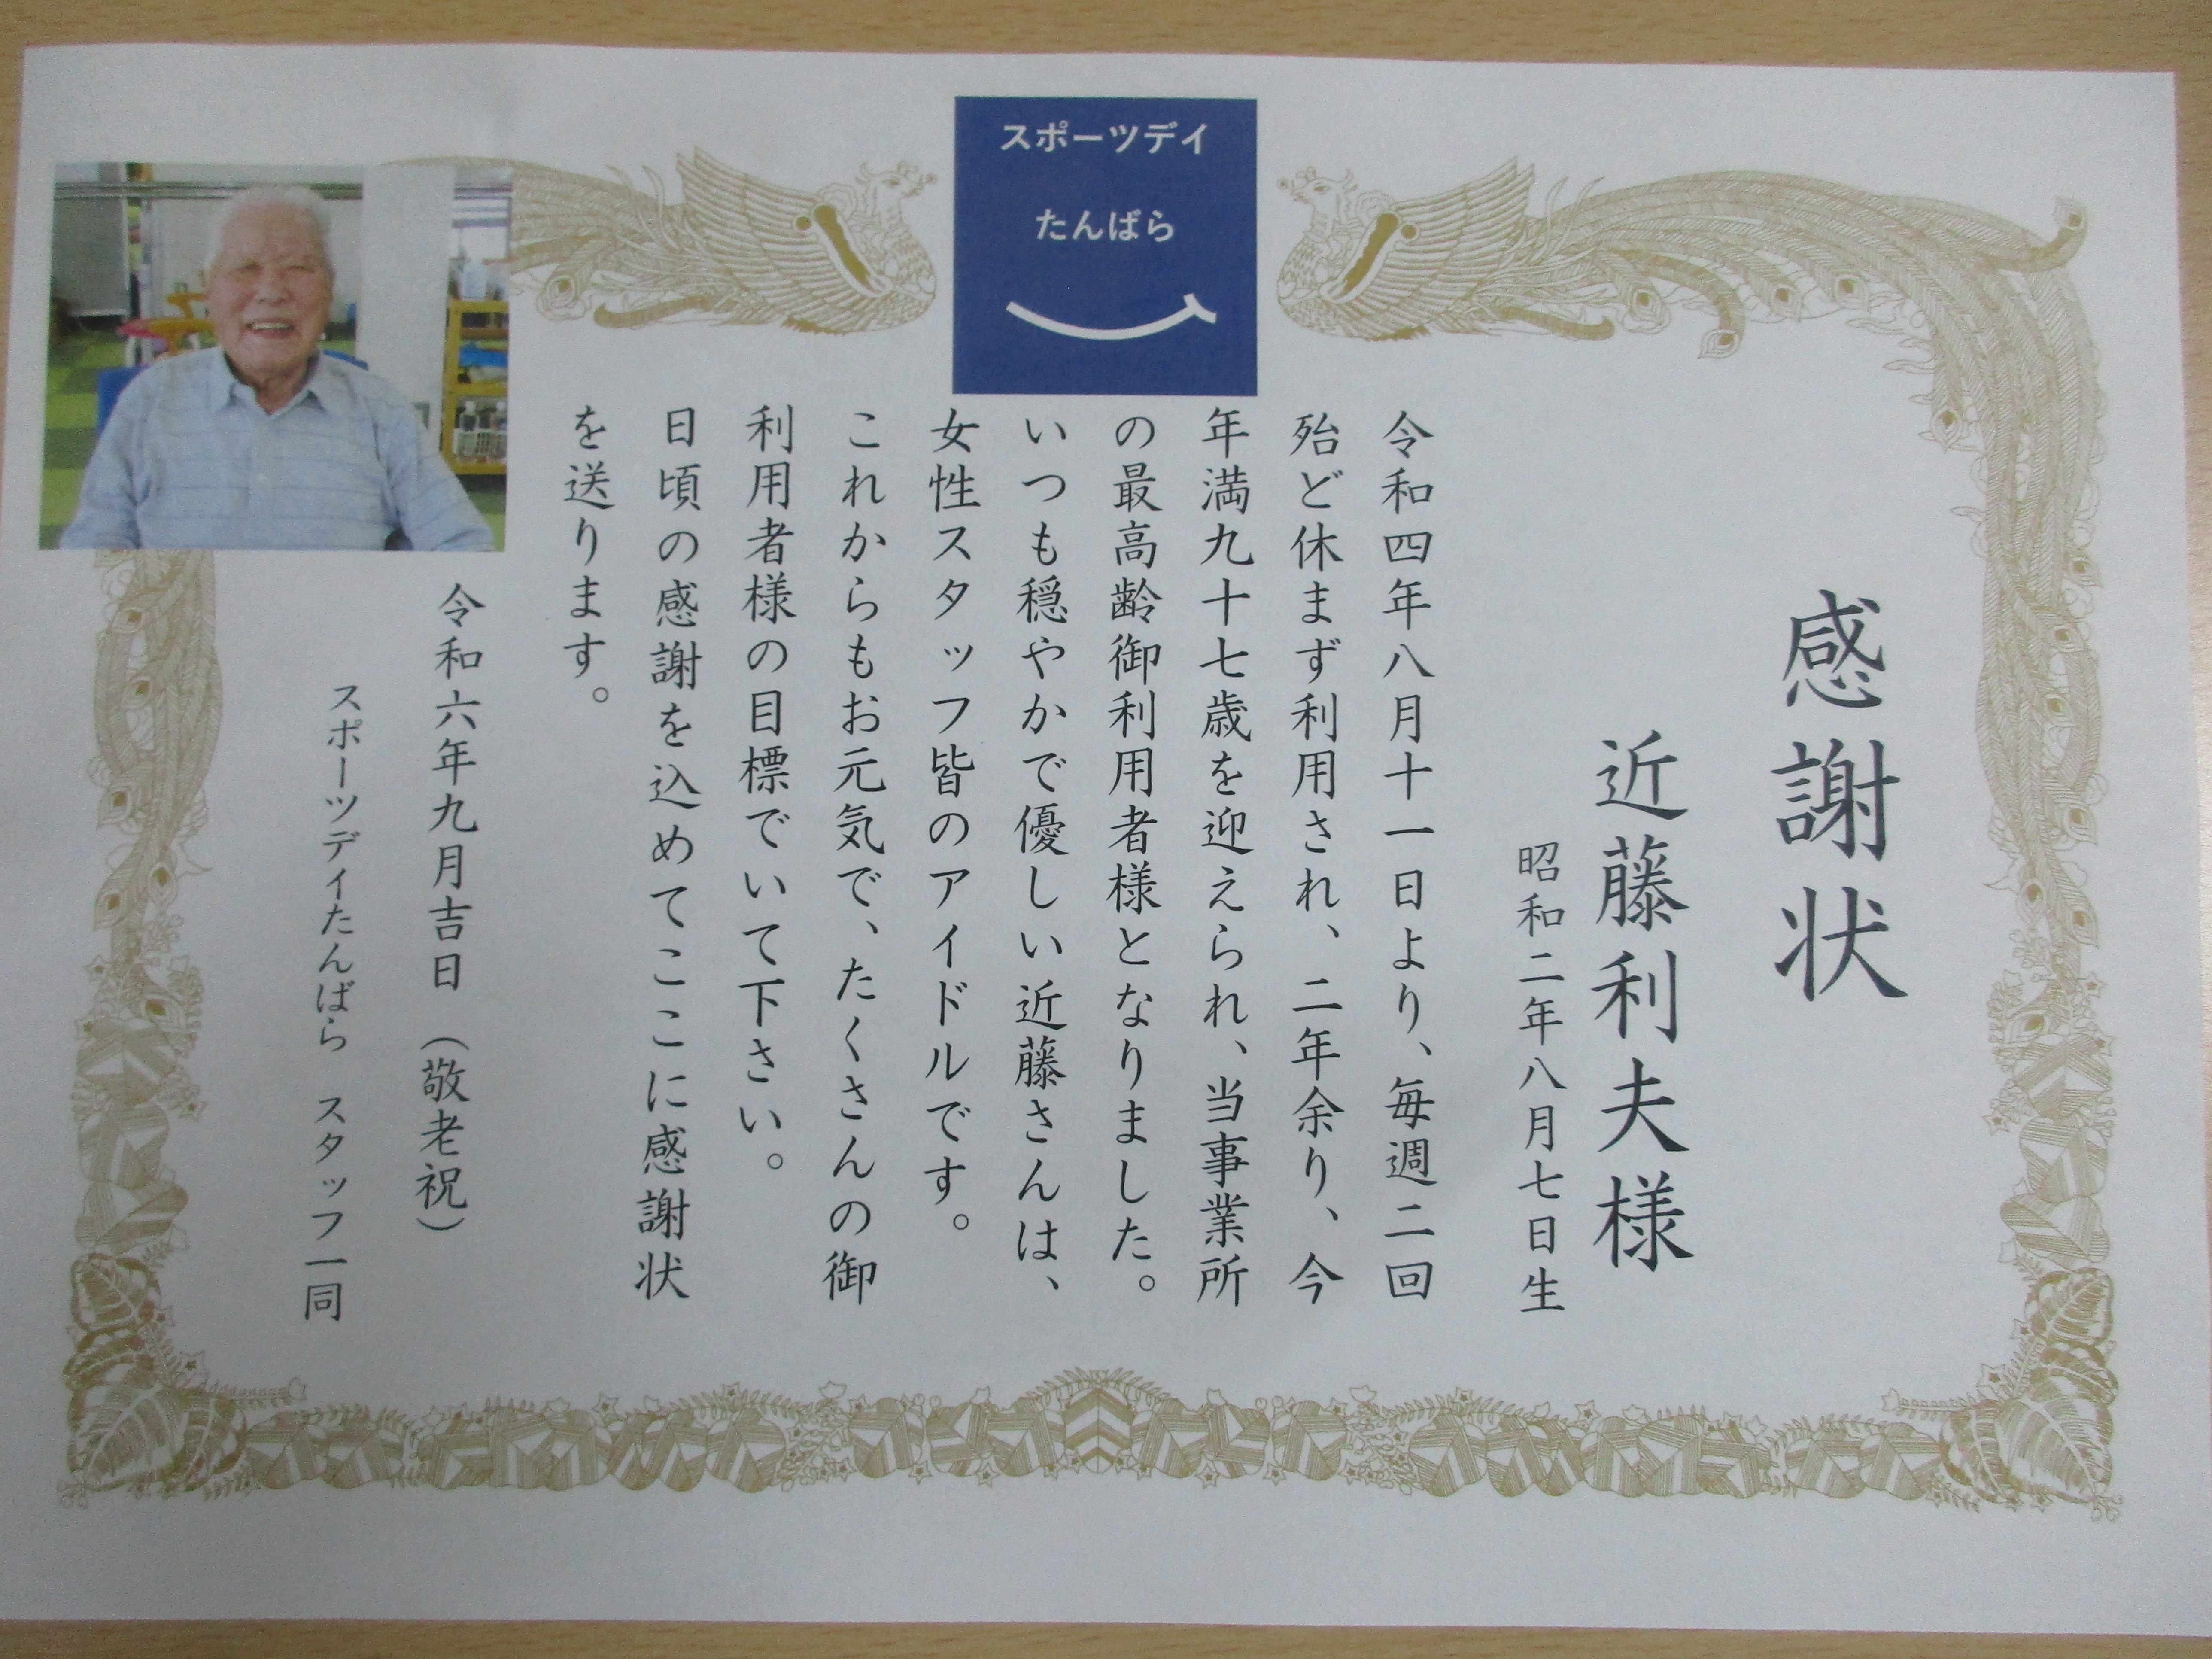 スポーツデイ
たんばら
感謝状
近藤利夫様
昭和二年八月七日生
令和四年八月十一日より、毎週二回
殆ど休まず利用され、二年余り、今
年満九十七歳を迎えられ、当事業所
の最高齢御利用者様となりました。
いつも穏やかで優しい近藤さんは、
女性スタッフ皆のアイドルです。
これからもお元気で、たくさんの御
利用者様の目標でいて下さい。
日頃の感謝を込めてここに感謝状
を送ります。
令和六年九月吉日（敬老祝）
スポーツデイたんばら　スタッフ一同